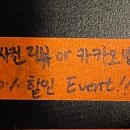 사진리뷰 or 카카오
% 할인 Event!!